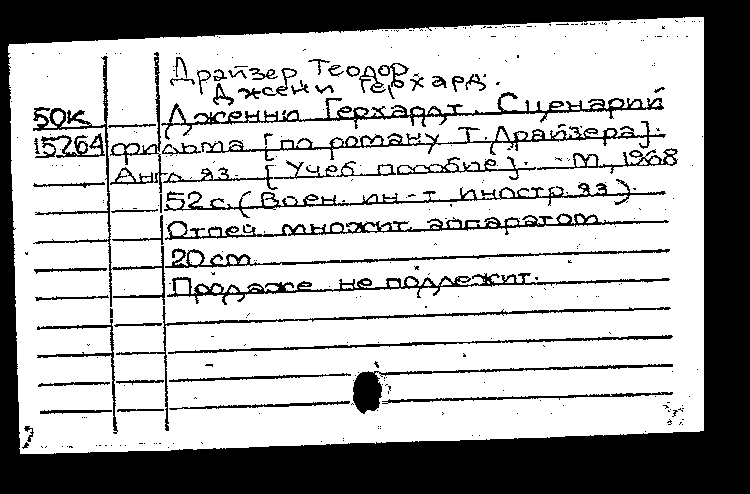 Драйзер Теодор.
Джени Герхард.
50к Дженни Герхардт. Сценарий
15264 фильма [по роману Т. Драйзера].
Англ. яз. [Учеб. пособие]. - М., 1968
52 с. (Воен. ин-т иностр. яз).
Отпеч. множит. аппаратом.
20 cm.
Продаже не подлежит.